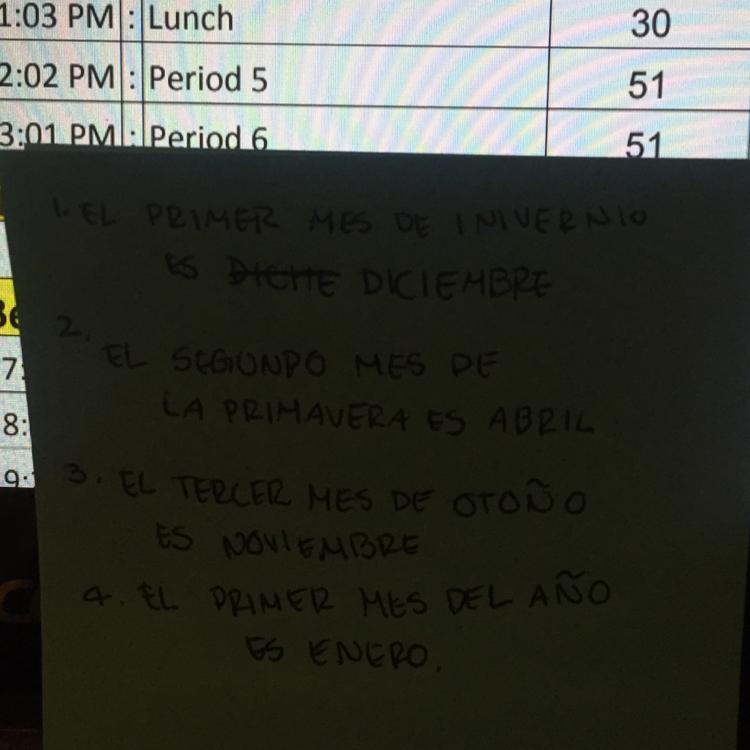 1:03 PM : Lunch 30
2:02 PM : Period 5 51
3:01 PM : Period 6 51
1. EL PRIMER MES DE INIVERNIO
ES DICIEMBRE
2.
EL SEGUNDO MES DE
LA PRIMAVERA ES ABRIL
3. EL TERCER MES DE OTOÑO
ES NOVIEMBRE
4. EL PRIMER MES DEL AÑO
ES ENERO.
7:
8:
9: